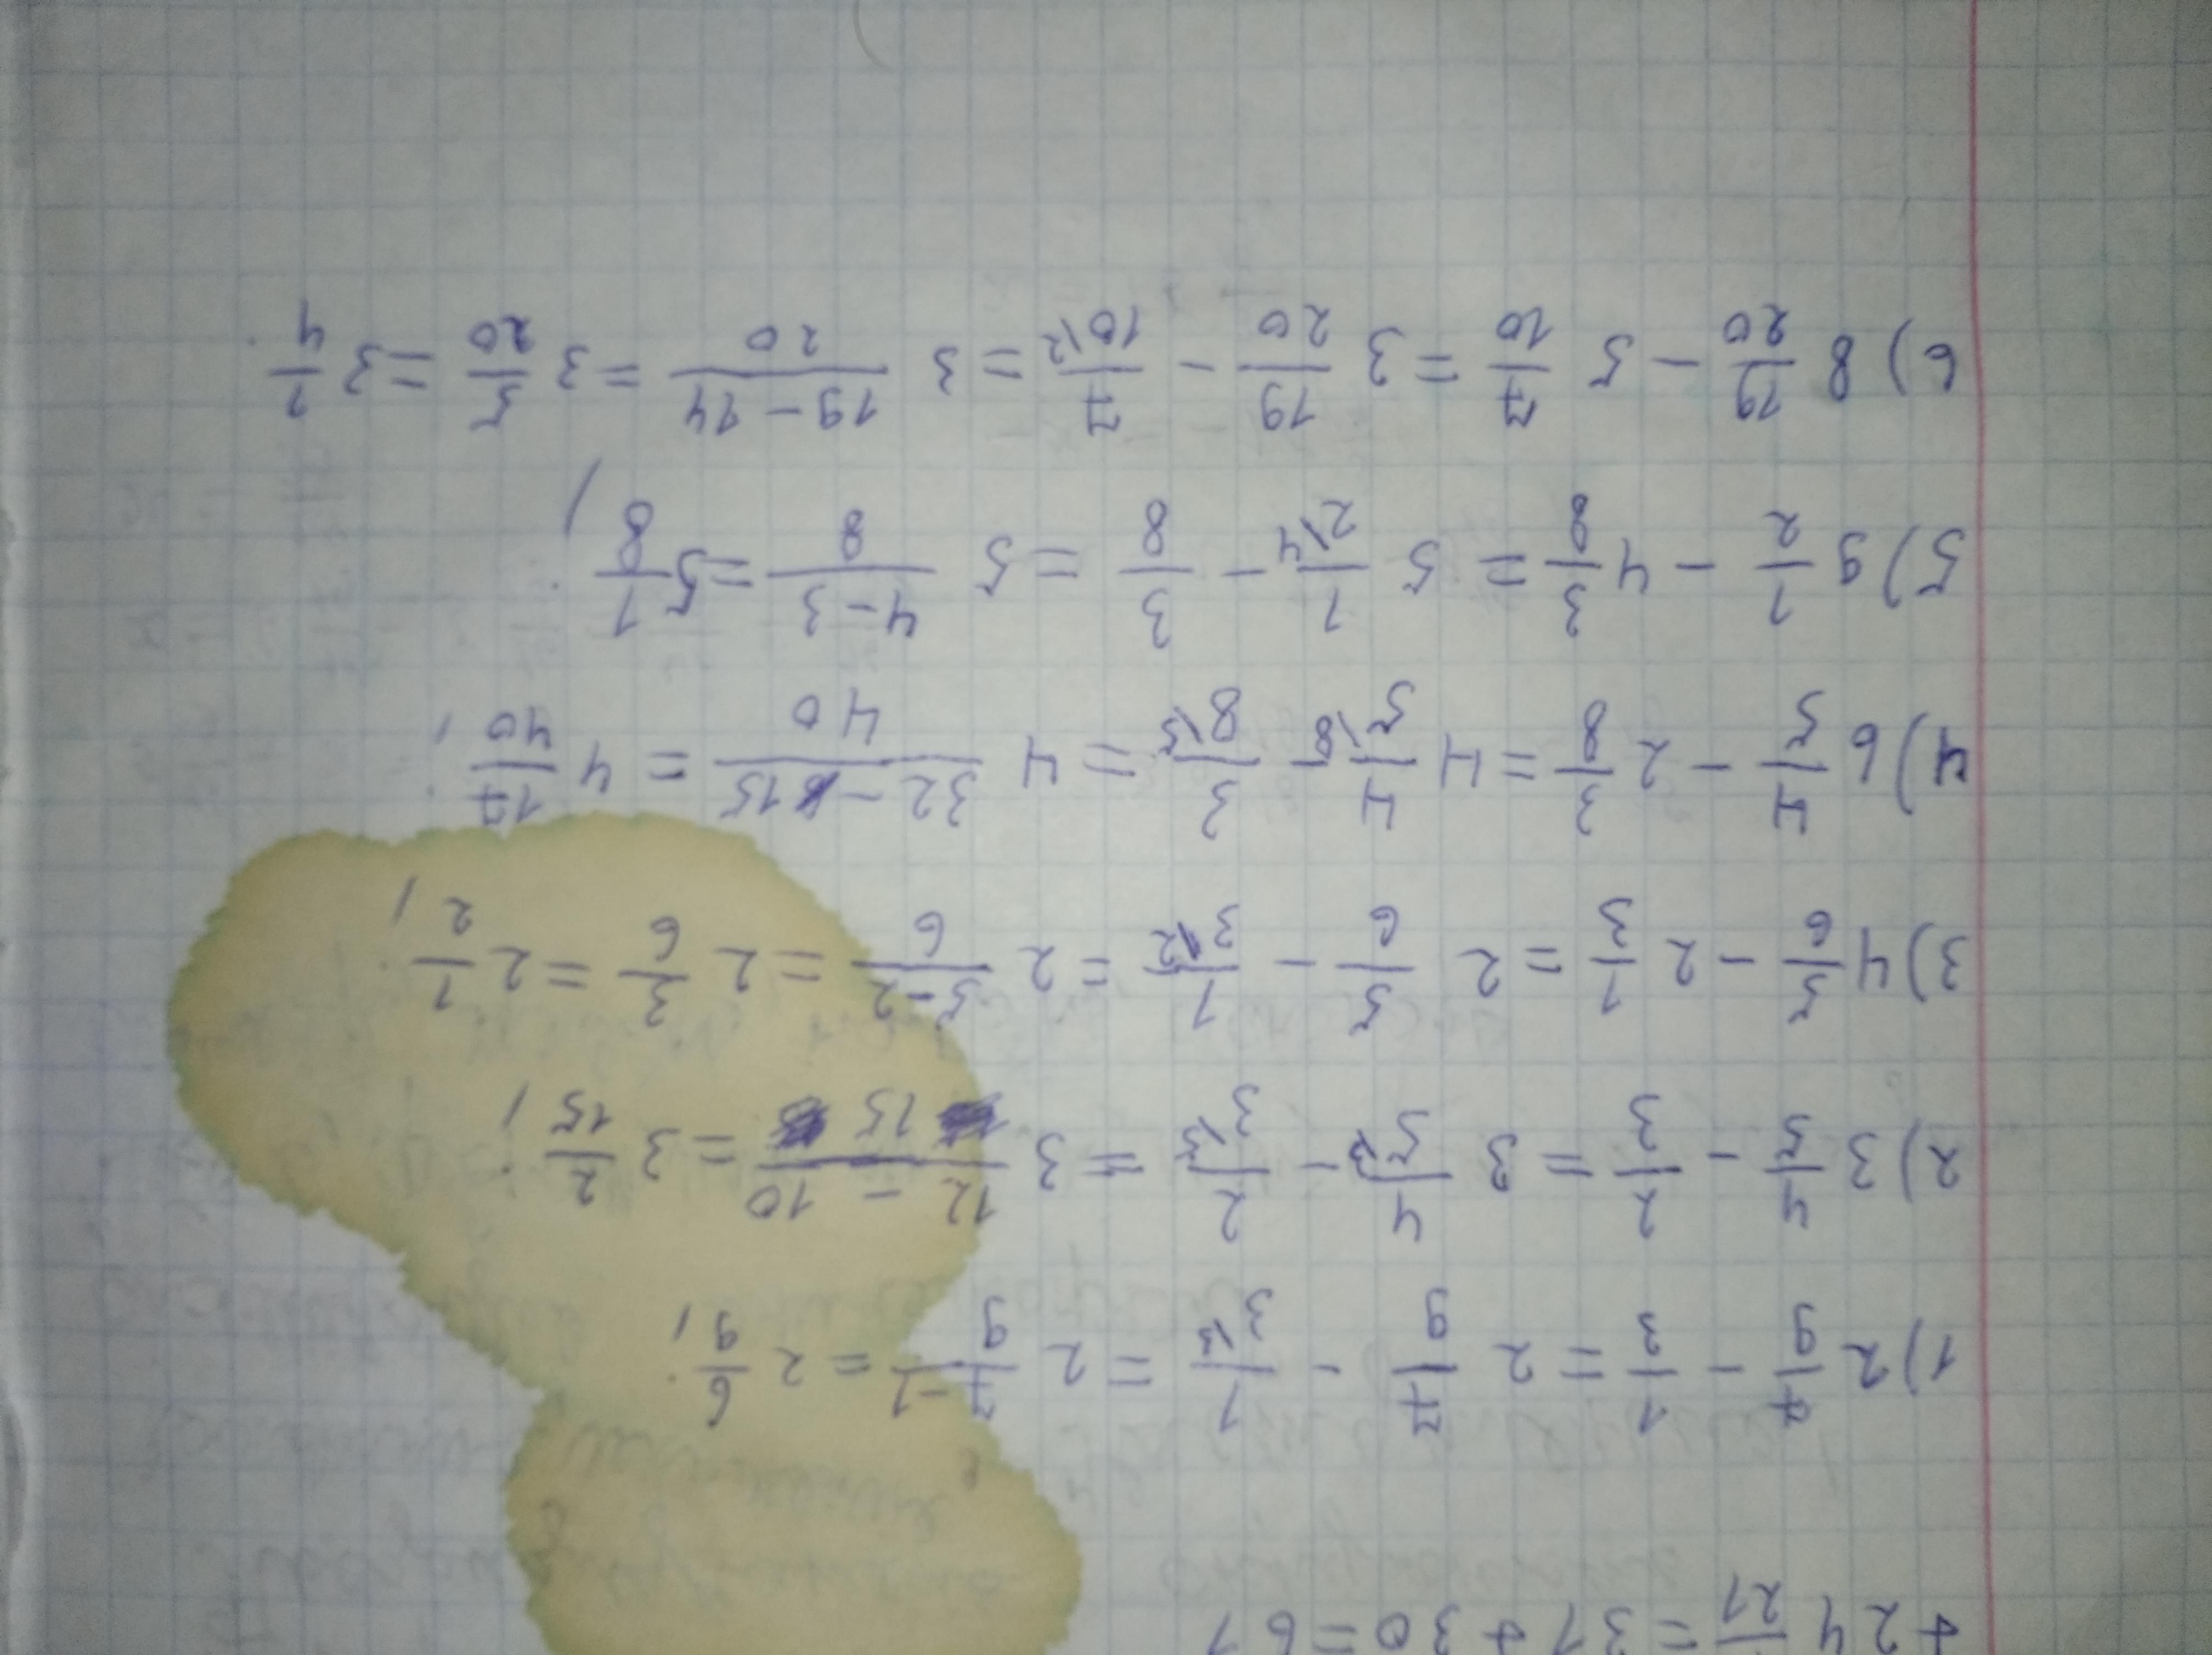 + 24 /21 = 31 + 30 = 61
1) 2 7/9 - 1/3 = 2 7/9 - 1/3\3 = 2 (7-1)/9 = 2 6/9;
2) 3 4/5 - 2/3 = 3 4/5\3 - 2/3\5 = 3 (12 - 10)/15 = 3 2/15;
3) 4 5/6 - 2 1/3 = 2 5/6 - 1/3\2 = 2 (5-2)/6 = 2 3/6 = 2 1/2;
4) 6 4/5 - 2 3/8 = 4 4/5\8 - 3/8\5 = 4 (32 - 15)/40 = 4 17/40;
5) 9 1/2 - 4 3/8 = 5 1/2\4 - 3/8 = 5 (4-3)/8 = 5 1/8;
6) 8 19/20 - 5 7/10 = 3 19/20 - 7/10\2 = 3 (19 - 14)/20 = 3 5/20 = 3 1/4.